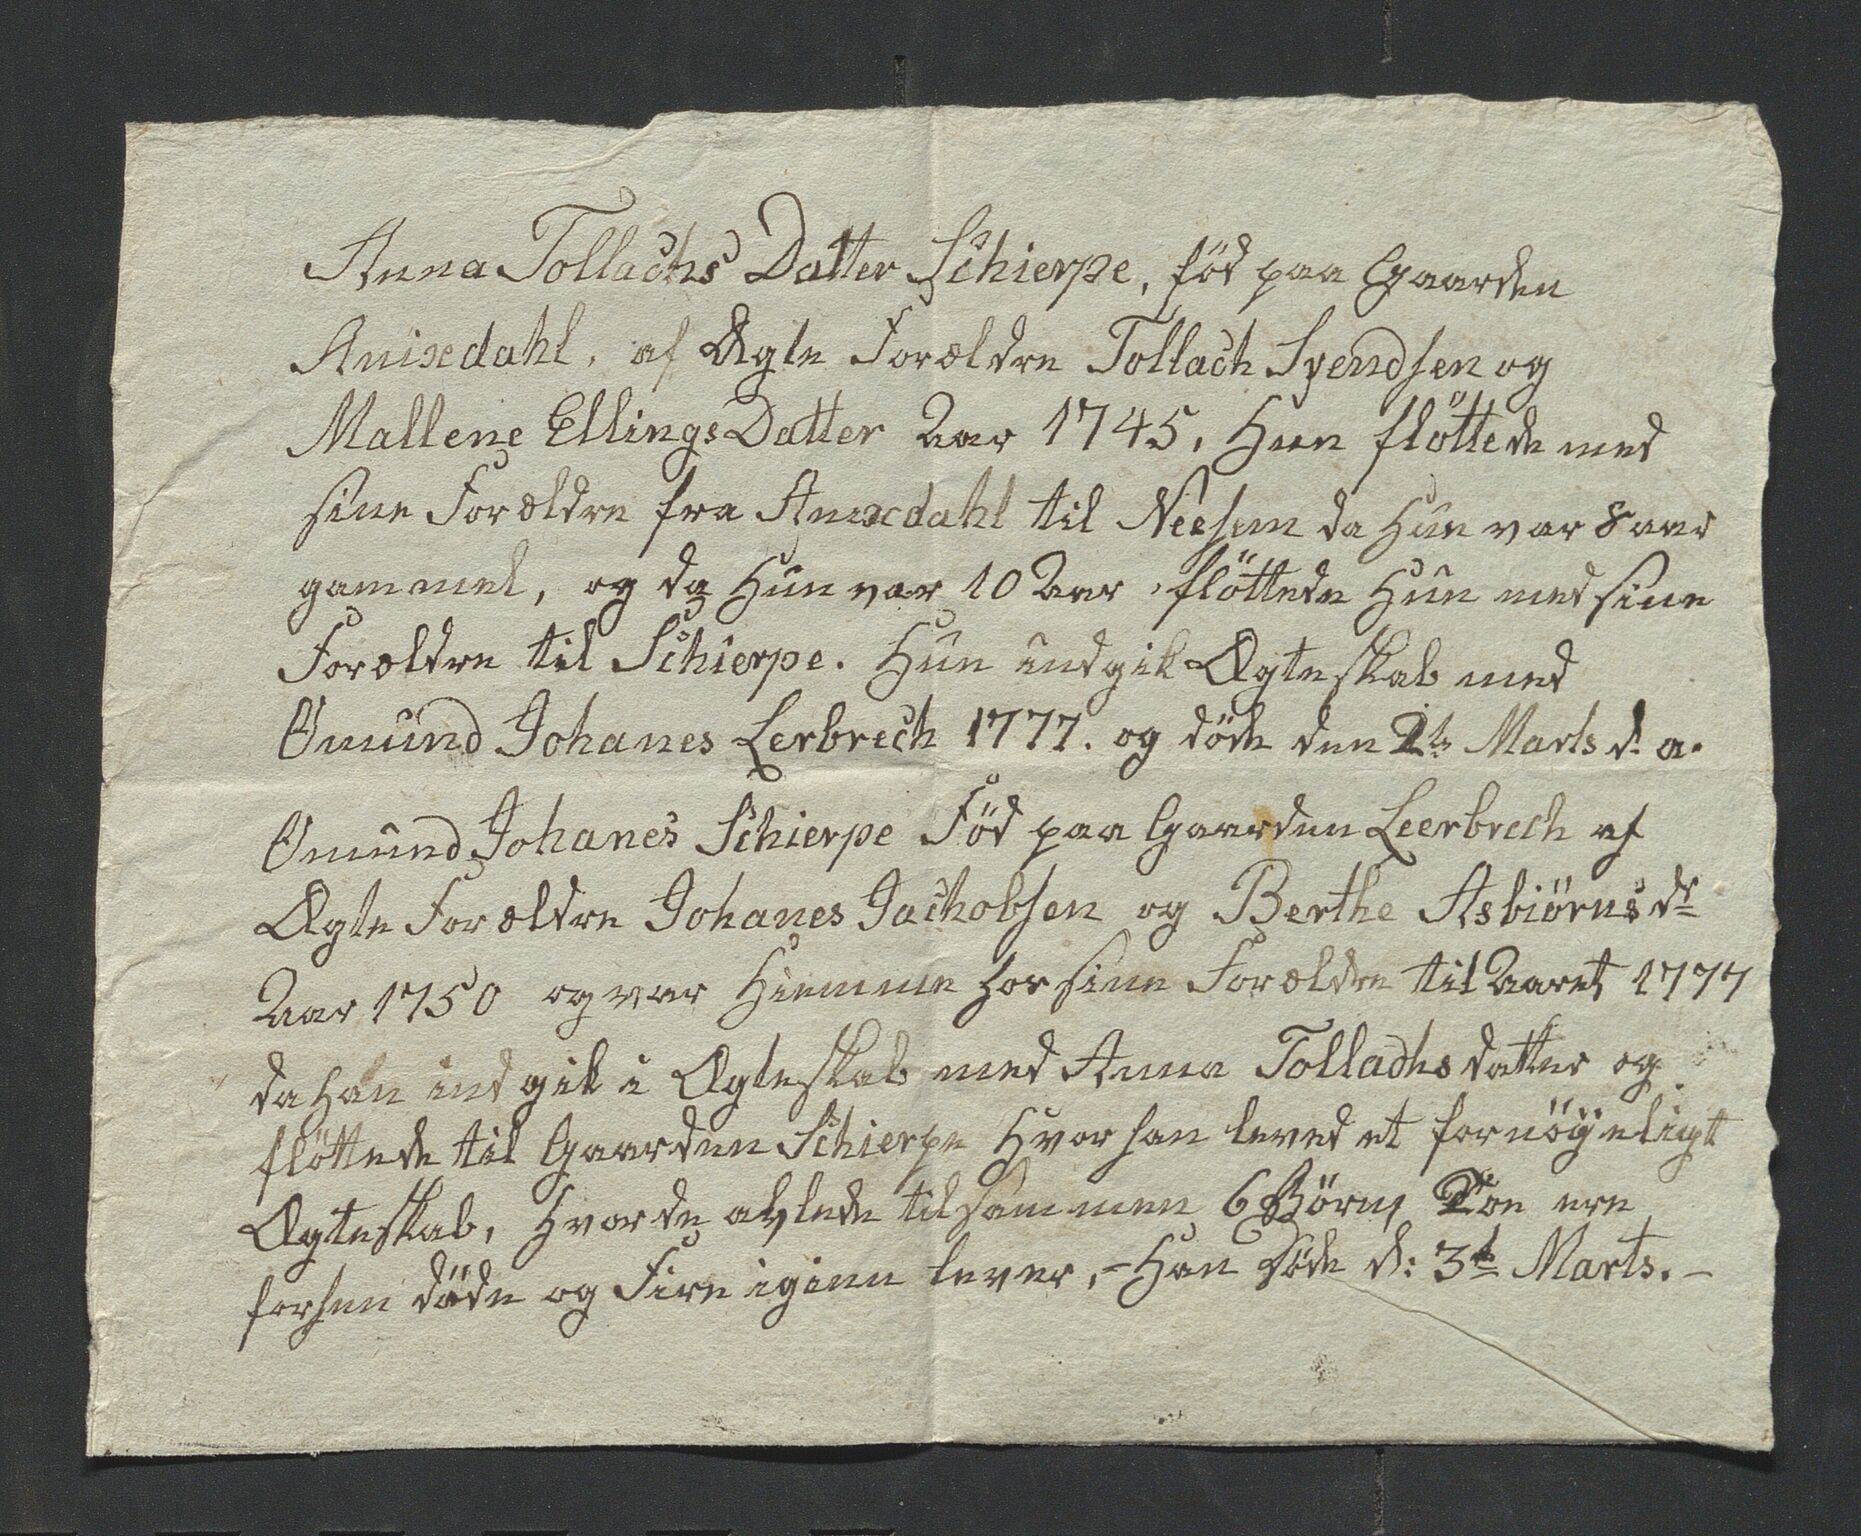 Anna Tollachs Datter Schierpe, föd paa Gaarden
Anixdahl, af Ægte Forældre Tollach Svendsen og
Mallene EllingsDatter Aar 1745, Hun flöttede med
sine Forældre fra Anixdahl til Neesum da Hun var 8 aar
gammel, og da Hun var 10 Aar, flöttede Hun med sine
Forældre til Schierpe. Hun indgik Ægteskab med
Omund Johanes Lerbrech 1777. og döde den 2te Marts d. a.
Omund Johanes Schierpe Föd paa Gaarden Leerbrech af
Ægte Forældre Johanes Jachobsen og Berthe Asbiörnsdr
Aar 1750 og var Hiemme hos sine Forældre til Aaret 1777
da Han indgik i Ægteskab med Anna Tollachsdatter og
flöttede til Gaarden Schierpe Hvor han leved et fornöyeligt
Ægteskab, Hvor de avlede tilsammen 6 Börn, Toe ere
forhen döde og Fire igien lever, - Han Döde d: 3te Marts. -